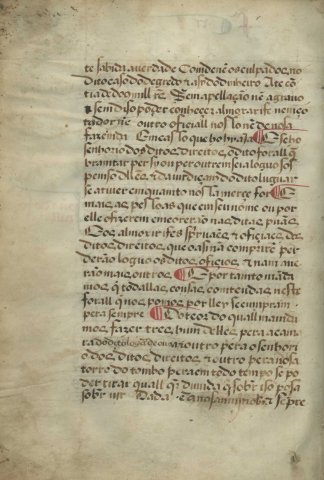 te sabida a verdade Condenẽ os culpados, no
dito caso do degredo & asy do dinheiro Ate cõ
tia de doos mill rs. Sem apellaçãõ nẽ agrauo
& sem diso poder conheçer almoxarife nem cõ
tador nẽ outro oficiall noso nẽ de nosa
fazenda Em caso que ho hi aja ¶ E se ho
senhorio dos ditos direitos, o dito forall q
brantar per sy ou per outrem seia loguo sos
penso delles & da jurdiçam do dito luguar
se a tiuer em quanto nossa merçe for ¶ E
mais as pesoas que em seu nome ou por
elle o fizerem emcorerão nas ditas penas,
E os almoxarifes spriuães & oficiaes dos
ditos direitos, que o asy nã comprirẽ per
derão loguo os ditos ofiçios & nam aue
rão mais outros ¶ E por tamto mãda
mos q todallas cousas comteudas neste
forall que nos poemos por lley se cumpram
pera sempre ¶ Do teor do quall manda
mos fazer tres, hum delles pera a cama
ra do dito logar de e outro pera o senhori
o dos ditos direitos & outro pera nosa
torre do tombo pera em todo tempo se po
der tirar quall qr duuida q sobr iso posa
sobr vir Dada